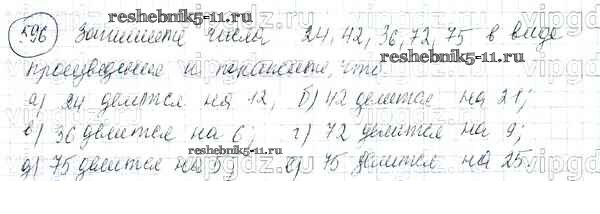 reshebnik5-11.ru
596 Запишите числа 24, 42, 36, 72, 75 в виде
reshebnik5-11.ru
произведения и поясните, что
а) 24 делится на 12, б) 42 делится на 21;
в) 36 делится на 6; г) 72 делится на 9;
reshebnik5-11.ru
д) 75 делится на 5; е) 75 делится на 25.
reshebnik5-11.ru